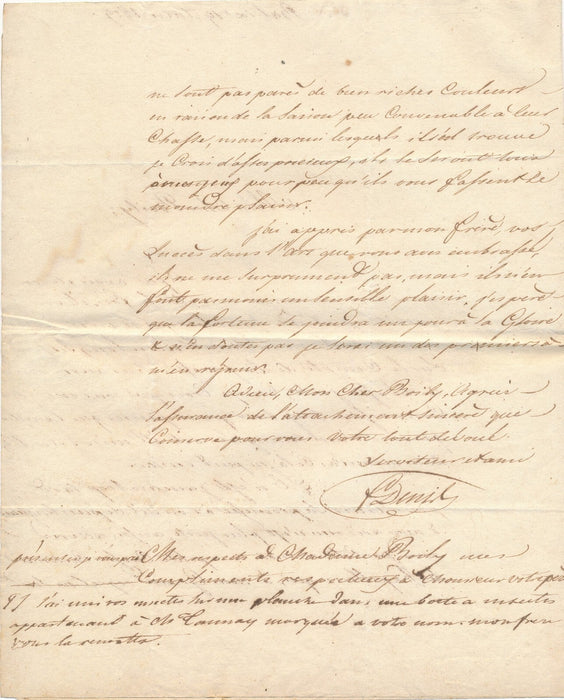 ne sont pas parés de bien riches Couleurs
en raison de la saison peu Convenable à leur
Chasse, mais parmi lesquels il s'en trouve
je Crois d'assez précieux, ils le seront tous
pour peu qu'ils vous fassent le
moindre plaisir.
J'ai appris par mon frère, vos
Succès dans l'art que vous avez embrassé,
ils ne me Surprennent pas, mais ils m'en
font pas moins un sensible plaisir, j'espère
que la fortune se joindra un jour à la Gloire
& n'en doutez pas je serai un des premiers à
m'en réjouir.
Adieu, Mon Cher Boily, Agréez
l'assurance de l'attachement sincère que
Conserve pour vous votre tout dévoué
Serviteur et ami
présentez je vous prie Mes respects à Madame Boily mes
Compliments respectueux à Monsieur votre père
J'ai mis vos insectes dans une boete a insectes
appartenant à Mr Launay marquée a votre nom. mon frere
vous la remettra.